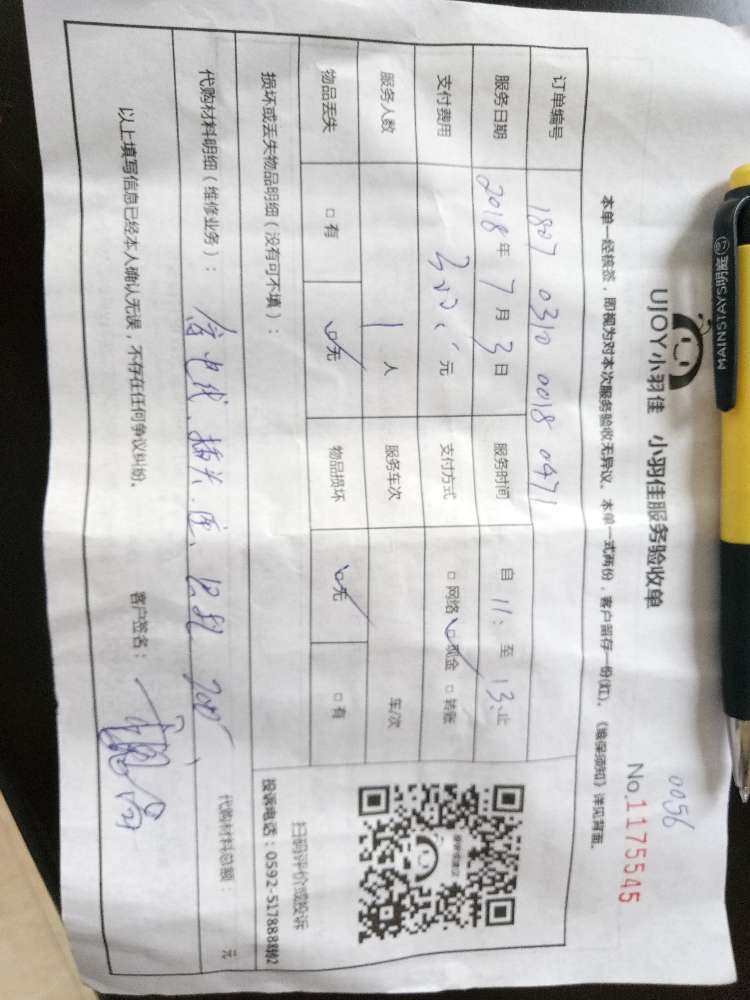 MAINSTAYS
0056
UJOY小羽佳 小羽佳服务验收单
No.1175545
本单一经核签，即视为对本次服务验收无异议。本单一式两份，客户留存一份(红)。《维保须知》详见背面。
订单编号 1807 0310 0018 0471
服务日期 2018年7月3日 服务时间 自 11: 至 13: 止
支付费用 元 支付方式 □ 网络 ☑ 现金 □ 转账
服务人数 1 人 服务车次 车/次
物品丢失 □ 有 ☑ 无 物品损坏 ☑ 无 □ 有
损坏或丢失物品明细（没有可不填）：
扫码评价或投诉
投诉电话：0592-5178888转2
代购材料明细（维修业务）： 电线、插头
代购材料总额： 元
以上填写信息已经本人确认无误，不存在任何争议纠纷。 客户签名：